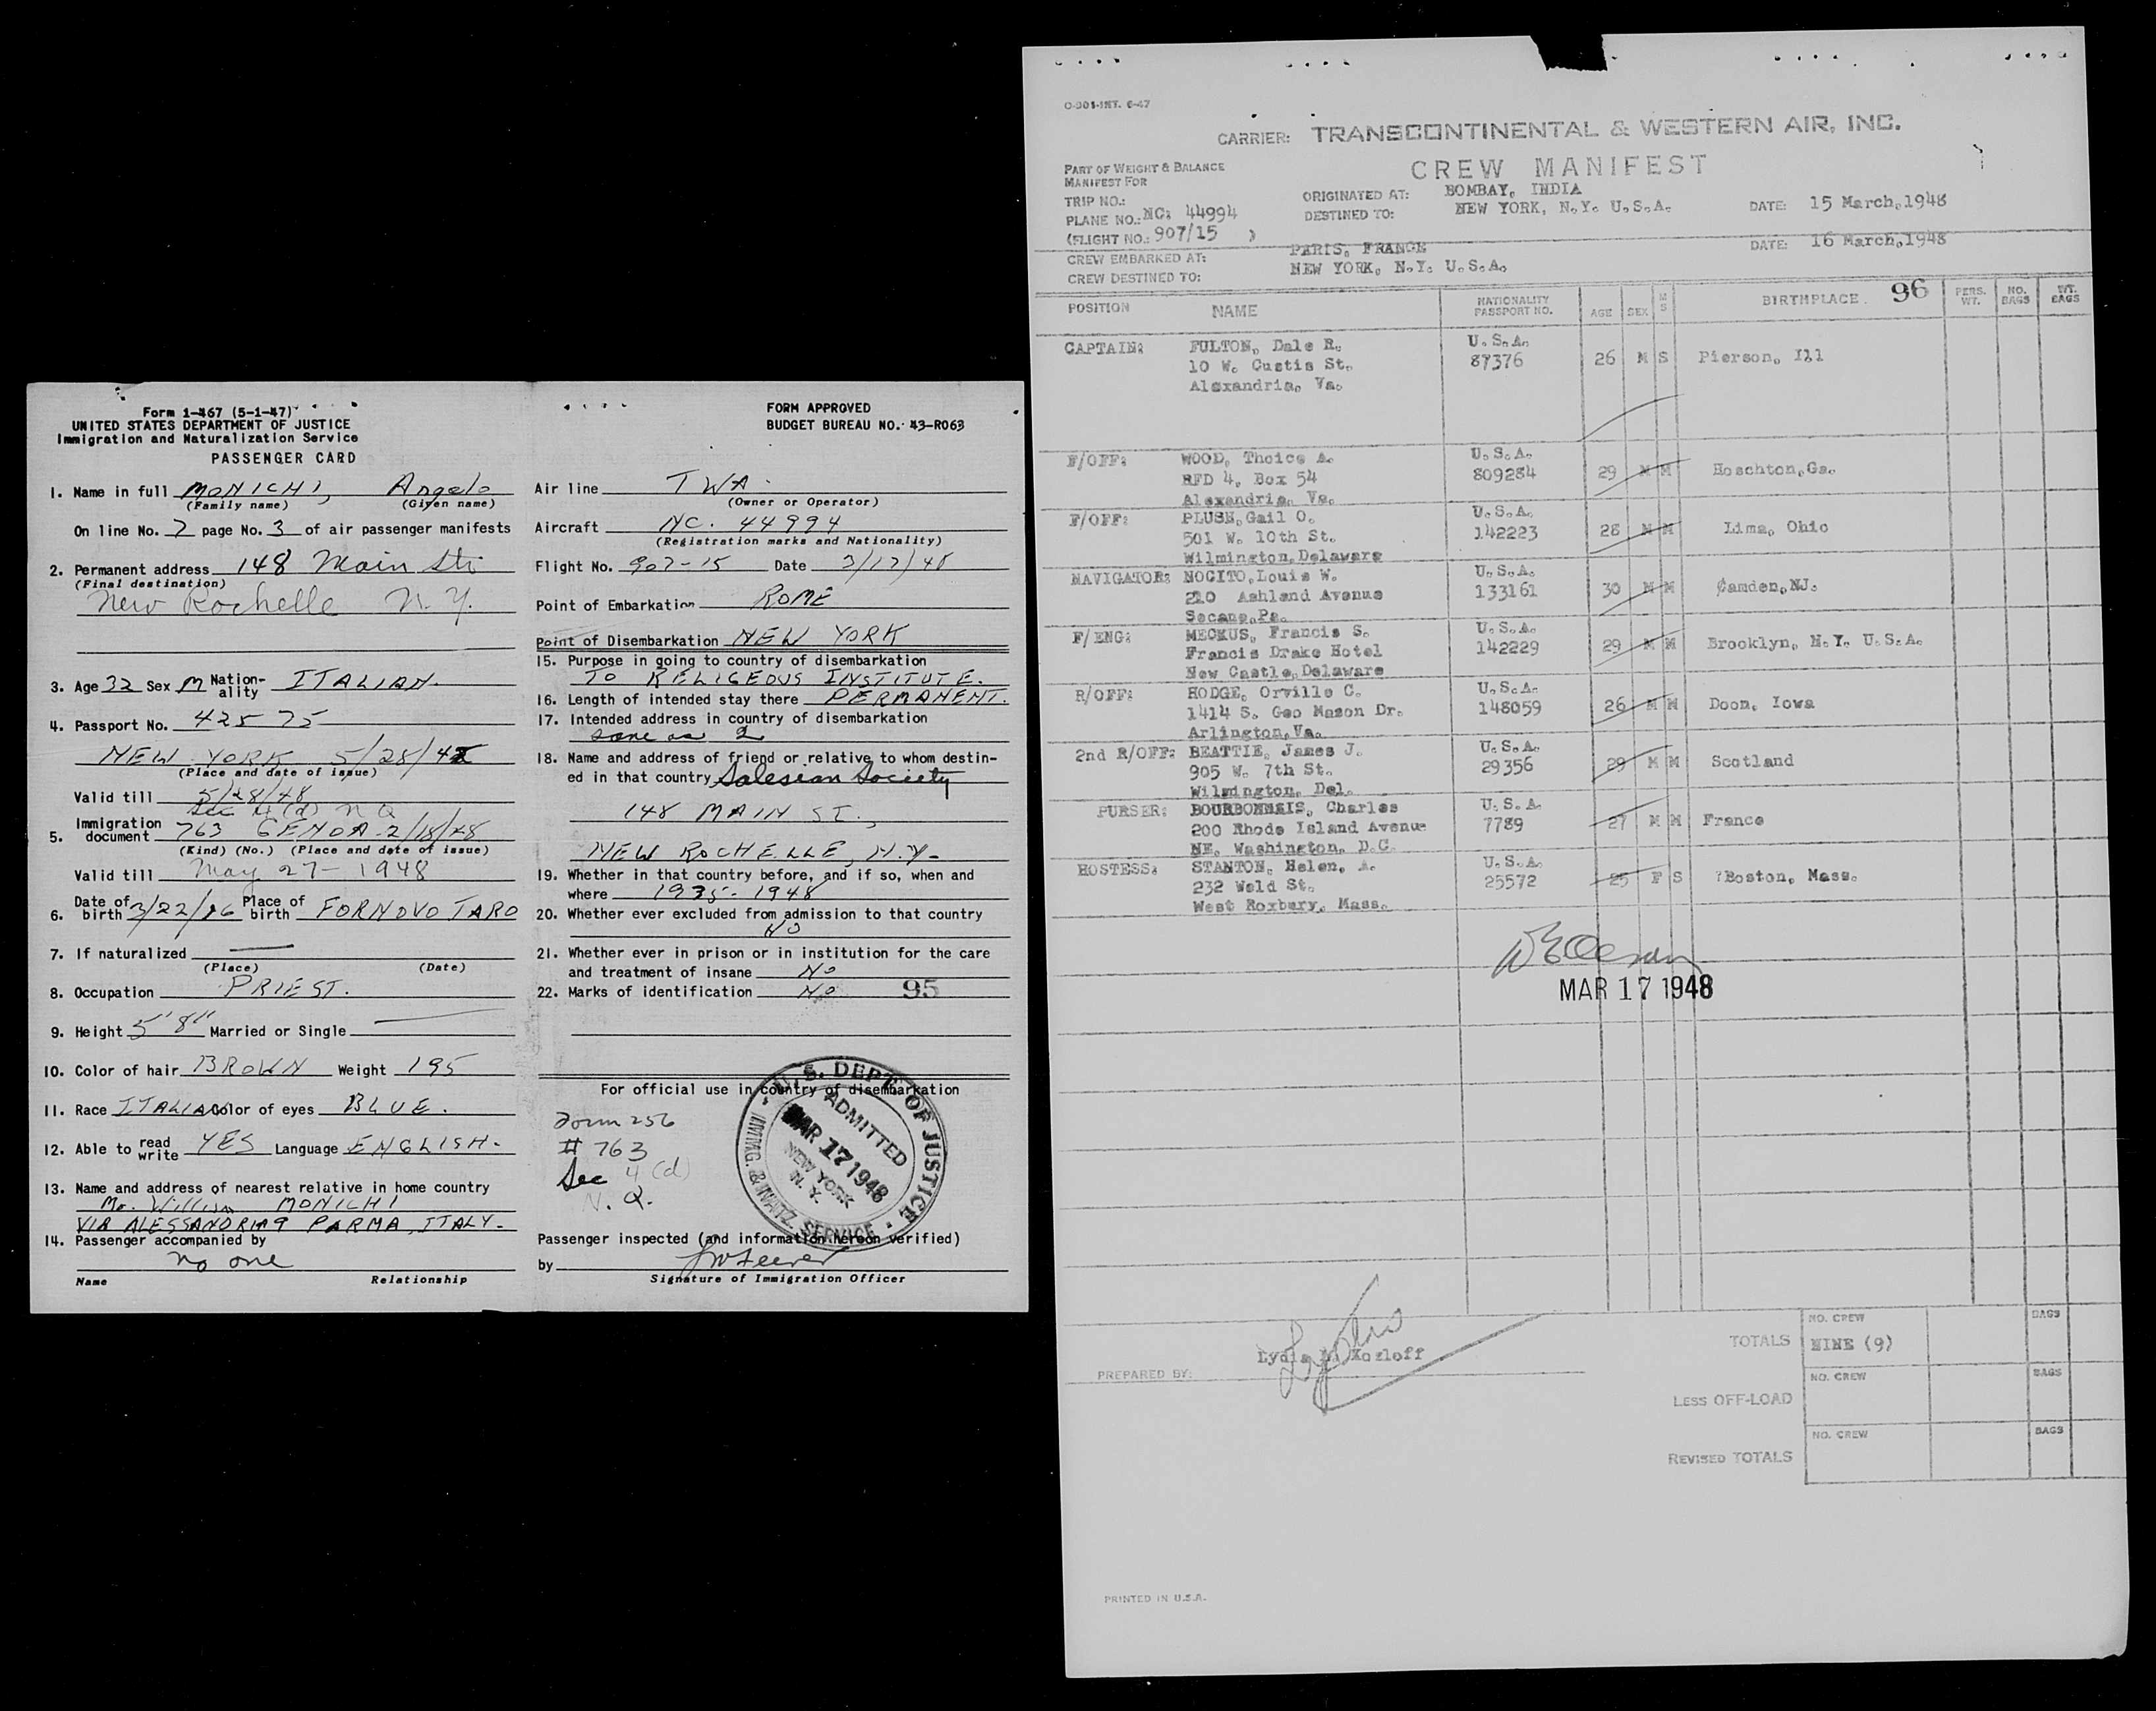 Form 1-467 (5-1-47)
UNITED STATES DEPARTMENT OF JUSTICE
Immigration and Naturalization Service
PASSENGER CARD
1. Name in full MONICHI, Angelo
(Family name) (Given name)
On line No. 7 page No. 3 of air passenger manifests
2. Permanent address 148 Main Str
(Final destination)
New Rochelle N.Y.
3. Age 32 Sex M Nation-ality ITALIAN.
4. Passport No. 42575
NEW YORK 5/28/4
(Place and date of issue)
Valid till 5/28/48
Sec 4 (d) N Q
5. Immigration document 763 GENOA - 2/18/48
(Kind) (No.) (Place and date of issue)
Valid till May 27 - 1948
6. Date of birth 3/22/16 Place of birth FORNOVO TARO
7. If naturalized
(Place) (Date)
8. Occupation PRIEST.
9. Height 5'8" Married or Single
10. Color of hair BROWN Weight 195
11. Race ITALIAN Color of eyes BLUE.
12. Able to read write YES Language ENGLISH-
13. Name and address of nearest relative in home country
Mr. William MONICHI
VIA ALESSANDRIA 9 PARMA, ITALY-
14. Passenger accompanied by
no one
Name Relationship
FORM APPROVED
BUDGET BUREAU NO. 43-R063
Air line TWA
(Owner or Operator)
Aircraft NC. 44994
(Registration marks and Nationality)
Flight No. 907-15 Date 3/17/48
Point of Embarkation ROME
Point of Disembarkation NEW YORK
15. Purpose in going to country of disembarkation
TO RELIGEOUS INSTITUTE.
16. Length of intended stay there PERMANENT.
17. Intended address in country of disembarkation
same as 2
18. Name and address of friend or relative to whom destin-
ed in that country Salesian Society
148 MAIN ST.,
NEW ROCHELLE, N.Y-
19. Whether in that country before, and if so, when and
where 1935-1948
20. Whether ever excluded from admission to that country
NO
21. Whether ever in prison or in institution for the care
and treatment of insane NO
22. Marks of identification NO 95
For official use in country of disembarkation
Form 256
# 763
Sec 4 (d)
N. Q.
U.S. DEPT OF JUSTICE
IMMIG. & NATZ. SERVICE
ADMITTED
MAR 17 1948
NEW YORK
N. Y.
Passenger inspected (and information hereon verified)
by
Signature of Immigration Officer
O-301-INT. 6-47
CARRIER: TRANSCONTINENTAL & WESTERN AIR, INC.
CREW MANIFEST
PART OF WEIGHT & BALANCE
MANIFEST FOR
TRIP NO.:
PLANE NO.: NC: 44994
(FLIGHT NO.: 907/15 )
ORIGINATED AT: BOMBAY, INDIA
DESTINED TO: NEW YORK, N.Y. U.S.A.
DATE: 15 March,1948
CREW EMBARKED AT: PARIS, FRANCE
DATE: 16 March,1948
CREW DESTINED TO: NEW YORK, N.Y. U.S.A.
POSITION NAME NATIONALITY PASSPORT NO. AGE SEX M S BIRTHPLACE 96 PERS. WT. NO. BAGS WT. BAGS
CAPTAIN: FULTON, Dale R. U.S.A.
10 W. Custis St. 87376 26 M S Pierson, Ill
Alexandria, Va.
F/OFF: WOOD, Thoice A. U.S.A.
RFD 4, Box 54 809284 29 M M Hoschton,Ga.
Alexandria, Va.
F/OFF: PLUSH, Gail O. U.S.A.
501 W. 10th St. 142223 28 M M Lima, Ohio
Wilmington,Delaware
NAVIGATOR: NOCITO,Louis W. U.S.A.
210 Ashland Avenue 133161 30 M M Camden,NJ.
Secane,Pa.
F/ENG: MECKUS, Francis S. U.S.A.
Francis Drake Hotel 142229 29 M M Brooklyn, N.Y. U.S.A.
New Castle,Delaware
R/OFF: HODGE, Orville C. U.S.A.
1414 S. Geo Mason Dr. 148059 26 M M Doon, Iowa
Arlington,Va.
2nd R/OFF: BEATTIE, James J. U.S.A.
905 W. 7th St. 29356 29 M M Scotland
Wilmington, Del.
PURSER: BOURBONNAIS, Charles U.S.A.
200 Rhode Island Avenue 7789 27 M M France
NE, Washington, D.C.
HOSTESS: STANTON, Helen, A. U.S.A.
232 Weld St. 25572 25 F S ?Boston, Mass.
West Roxbury, Mass.
MAR 17 1948
PREPARED BY: Lydia M. Kozloff
TOTALS NO. CREW NINE (9) BAGS
LESS OFF-LOAD NO. CREW BAGS
REVISED TOTALS NO. CREW BAGS
PRINTED IN U.S.A.